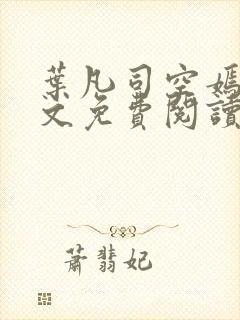 葉凡司空嫣
文免費閱讀
蕭翡妃